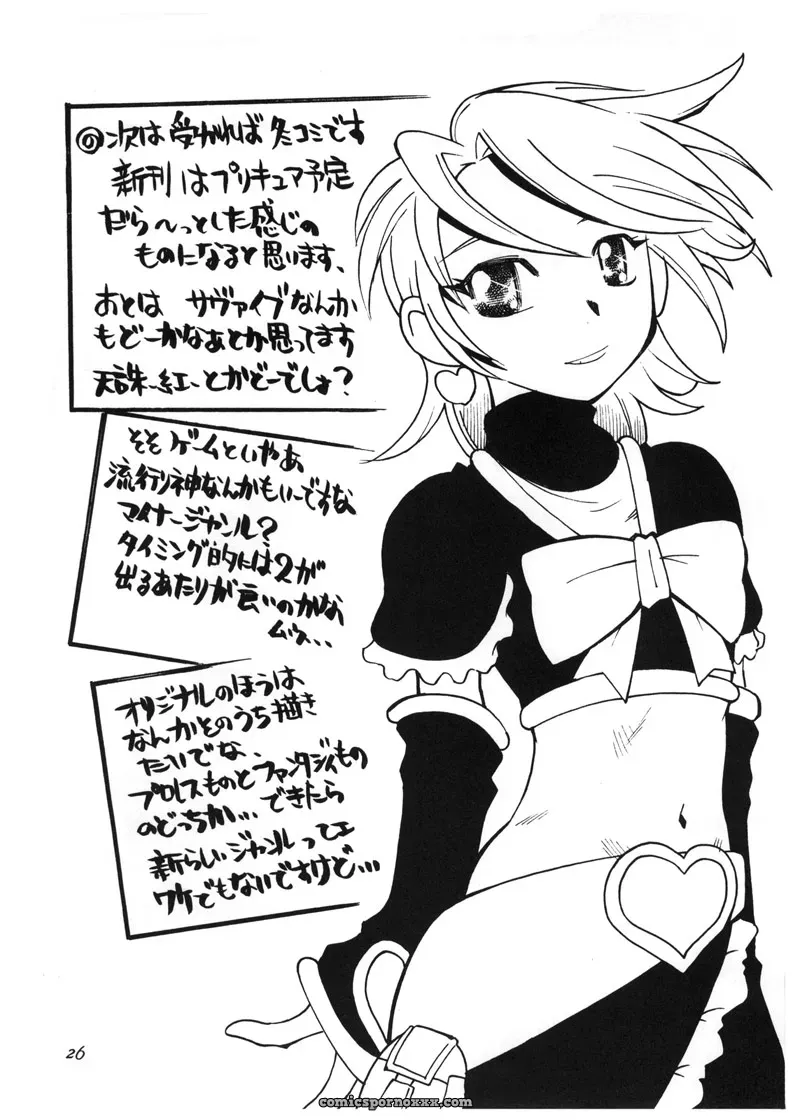 ◎次は受かれば冬コミです
新刊はプリキュア予定
だら〜っとした感じの
ものになると思います、
あとは サヴァイブなんか
もどーかなぁとか思ってます
天誅 紅 とかどーでしょ?
そそ ゲームといやあ
流行り神なんかもいーですな
マイナージャンル?
タイミング的には2が
出るあたりが良いのかなぁ
ムゥ...
オリジナルのほうは
なんかそのうち描き
たいでな、
プロレスものとファンタジィもの
のどっちか... できたら
新らしいジャンルってェ
ワケでもないですけど...
26
comicspornoxxx.com